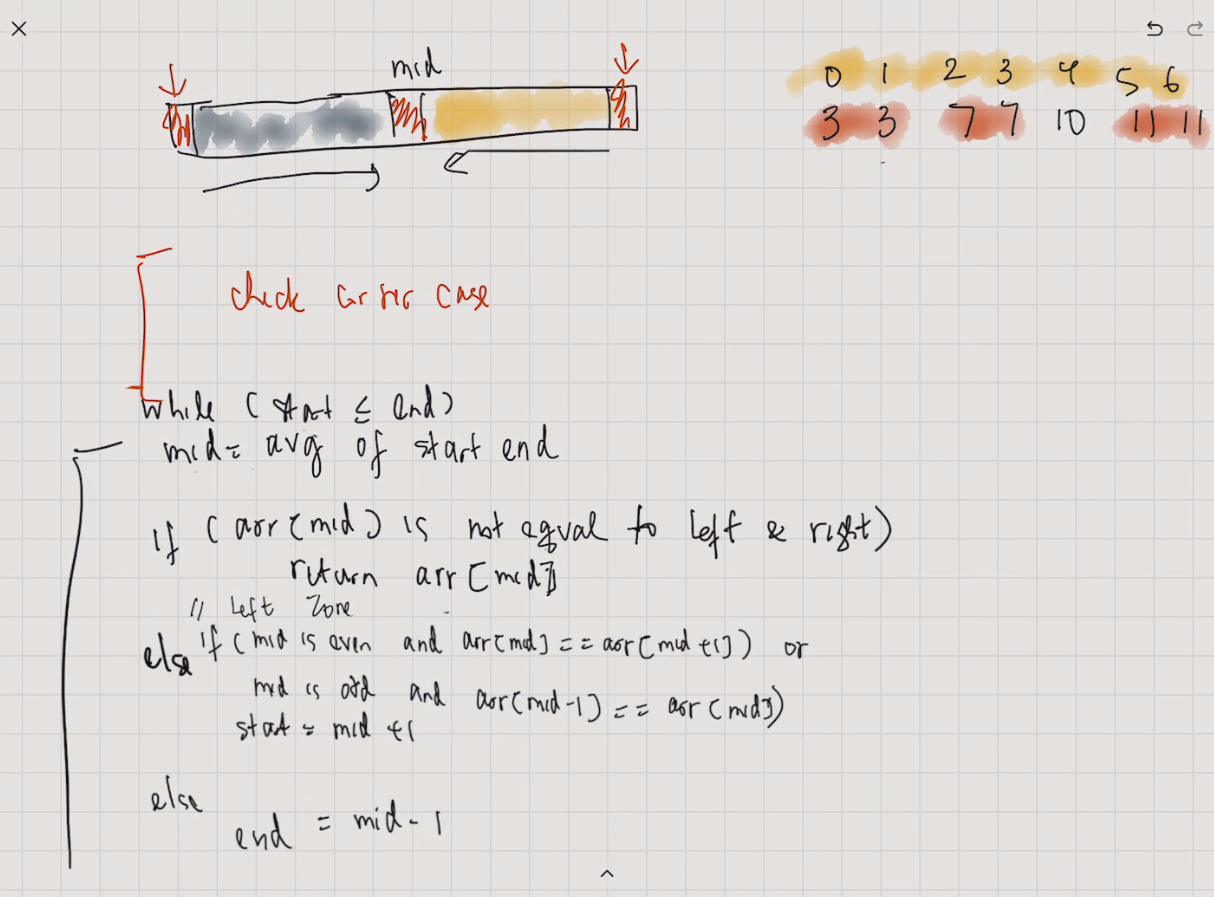 mid
0 1 2 3 4 5 6
3 3 7 7 10 11 11
check corner case
while (start ≤ end)
mid = avg of start end
if (arr(mid) is not equal to left & right)
return arr[mid]
// Left Zone
else if (mid is even and arr[mid] == arr[mid+1]) or
mid is odd and arr[mid-1] == arr[mid])
start = mid +1
else
end = mid-1